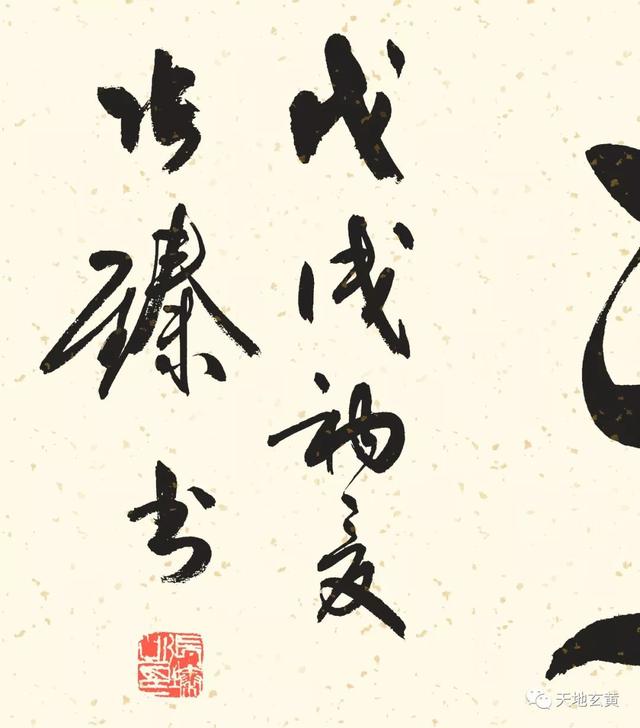 戊戌初夏
张臻书
天地玄黄